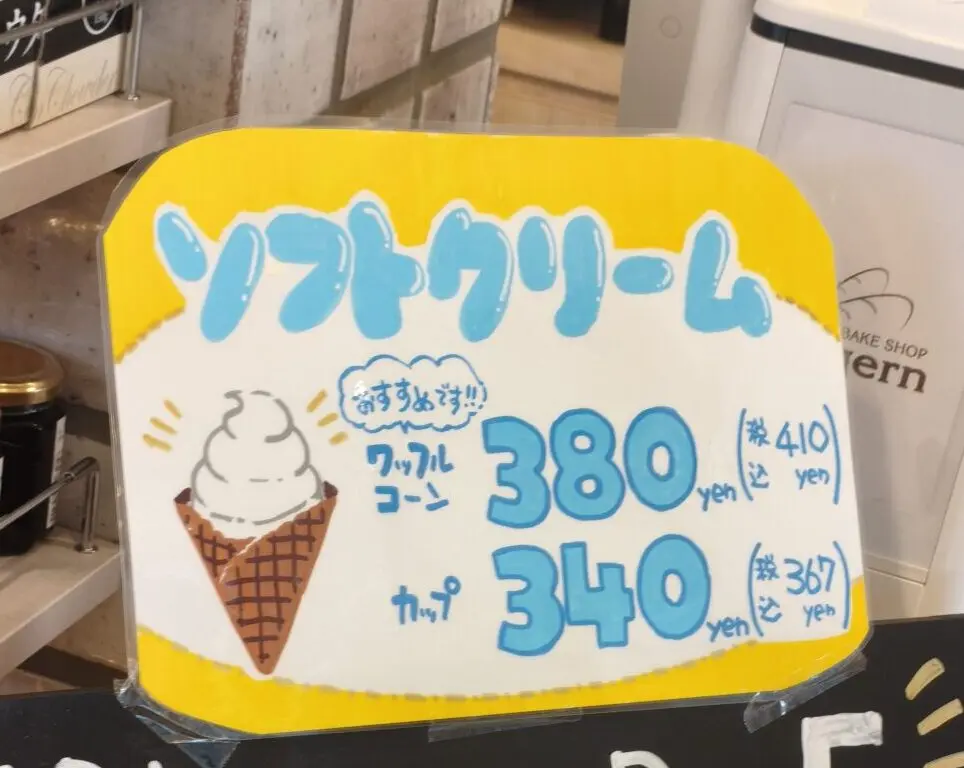 ソフトクリーム
おすすめです!!
ワッフル
コーン
380yen
(税込 410yen)
カップ
340yen
(税込 367yen)
BAKE SHOP